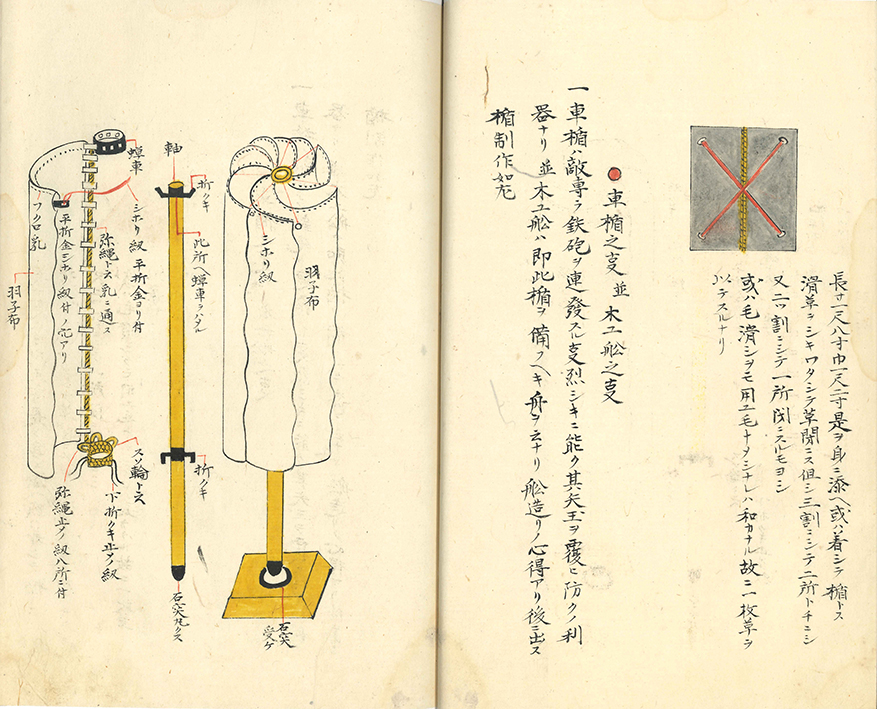 長サ一尺八寸巾一尺二寸是ヲ身ニ添ヘ或ハ着シテ楯トス
滑革ヲシキワタシテ革閉ニス但シ三割ニシテ二所トチニシ
又二ツ割ニシテ一所閉ニスルモヨシ
或ハ毛滑シヲモ用ユ毛ナメシナレハ和カナル故ニ一枚革ヲ
以テスルナリ
車楯之支並木ユ舩之支
一車楯ハ敵専ラ鉄砲ヲ連發スル支烈シキニ能ク其矢玉ヲ覆ヒ防クノ利
器ナリ並木ユ舩ハ即此楯ヲ備フヘキ舟ヲ云ナリ舩造リノ心得アリ後ニ出ス
楯制作如左
羽子布
シホリ紐
石突
受ケ
折クキ
軸
此所ヘ蟬車ヲハタル
折クキ
石突丸クス
蟬車
シホリ紐平折金ヨリ付
弥縄トス乳ニ通ス
平折金シホリ紐付ノ穴アリ
フクロ乳
羽子布
スソ輪トス
下折クキ止メノ紐
弥縄止メノ紐八所ニ付